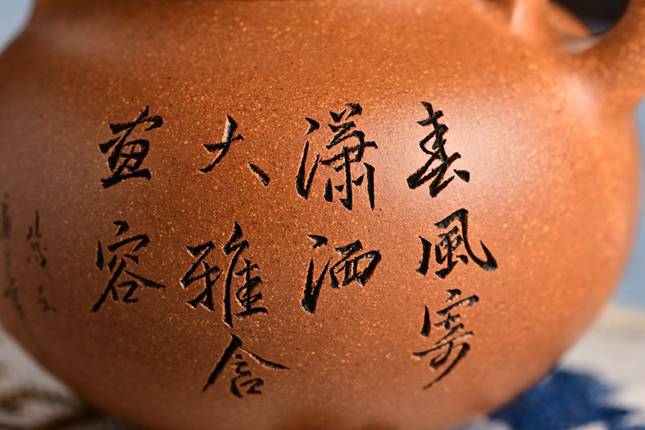 春風寄
瀟洒
大雅含
畫容